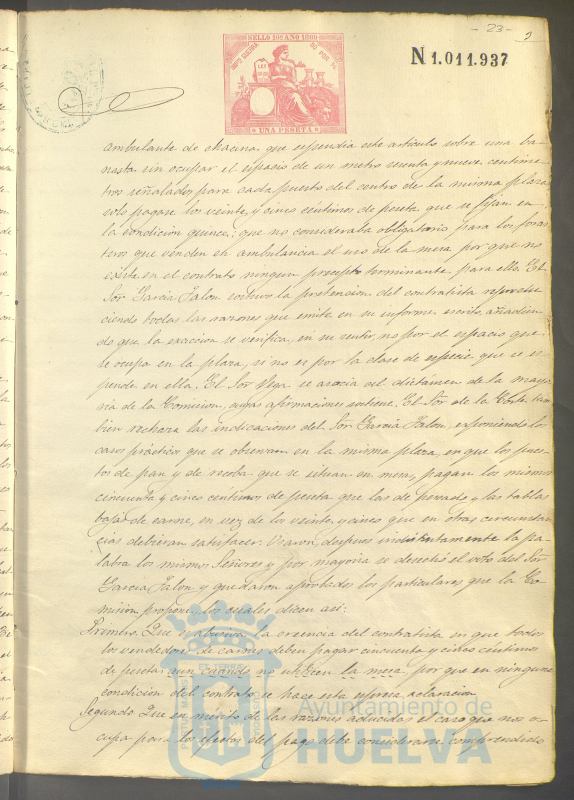 - 23 -
SELLO 10º AÑO 1886
UNA PESETA
N 1.011.937
ambulante de chacina que espendia este artículo sobre una ba-
nasta sin ocupar el espacio de un metro sesenta y nueve centíme-
tros señalados para cada puesto del centro de la misma plaza
solo pagase los veinte y cinco céntimos de peseta que se fijan en
la condicion quince; que no consideraba obligatorio para los foras-
teros que venden en ambulancia el uso de la mesa por que no
existe en el contrato ningun precepto terminante para ello. El
Sor Garcia Jalon sostuvo la pretencion del contratista reprodu-
ciendo todas las razones que emite en su informe escrito, añadien-
do que la exaccion se verifica, en su sentir, no por el espacio que
se ocupa en la plaza, si no es por la clase de especie que se es-
pende en ella. El Sor Vega se asocia al dictámen de la mayo-
ria de la Comision, cuyas afirmaciones sostiene. El Sor de la Corte tam-
bien rechaza las indicaciones del Sor Garcia Jalon, exponiendo los
casos prácticos que se observan en la misma plaza, en que los pues-
tos de pan y de recoba que se situan en mesa, pagan los mismos
cincuenta y cinco centimos de peseta que las de pescado y las tablas
bajas de carne, en vez de lo veinte y cinco que en otras circunstan-
cias debieran satisfacer. Usaron, despues indistintamente la pa-
labra los mismos Señores y por mayoria se desechó el voto del Sor
Garcia Jalon y quedaron aprobados los particulares que la Co-
mision propone, los cuales dicen así:
Primero. Que es abusiva la creencia del contratista en que todos
los vendedores de carnes deben pagar cincuenta y cinco céntimos
de peseta aun cuando no utilicen la mesa, por que en ninguna
condicion del contrato se hace esta espresa aclaracion
Segundo. Que en mérito de las razones aducidas el caso que nos o-
cupa para los efectos del pago debe considerarse comprendido
Ayuntamiento de
HUELVA